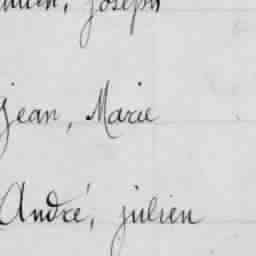 Joseph
Jean, Marie
André, julien